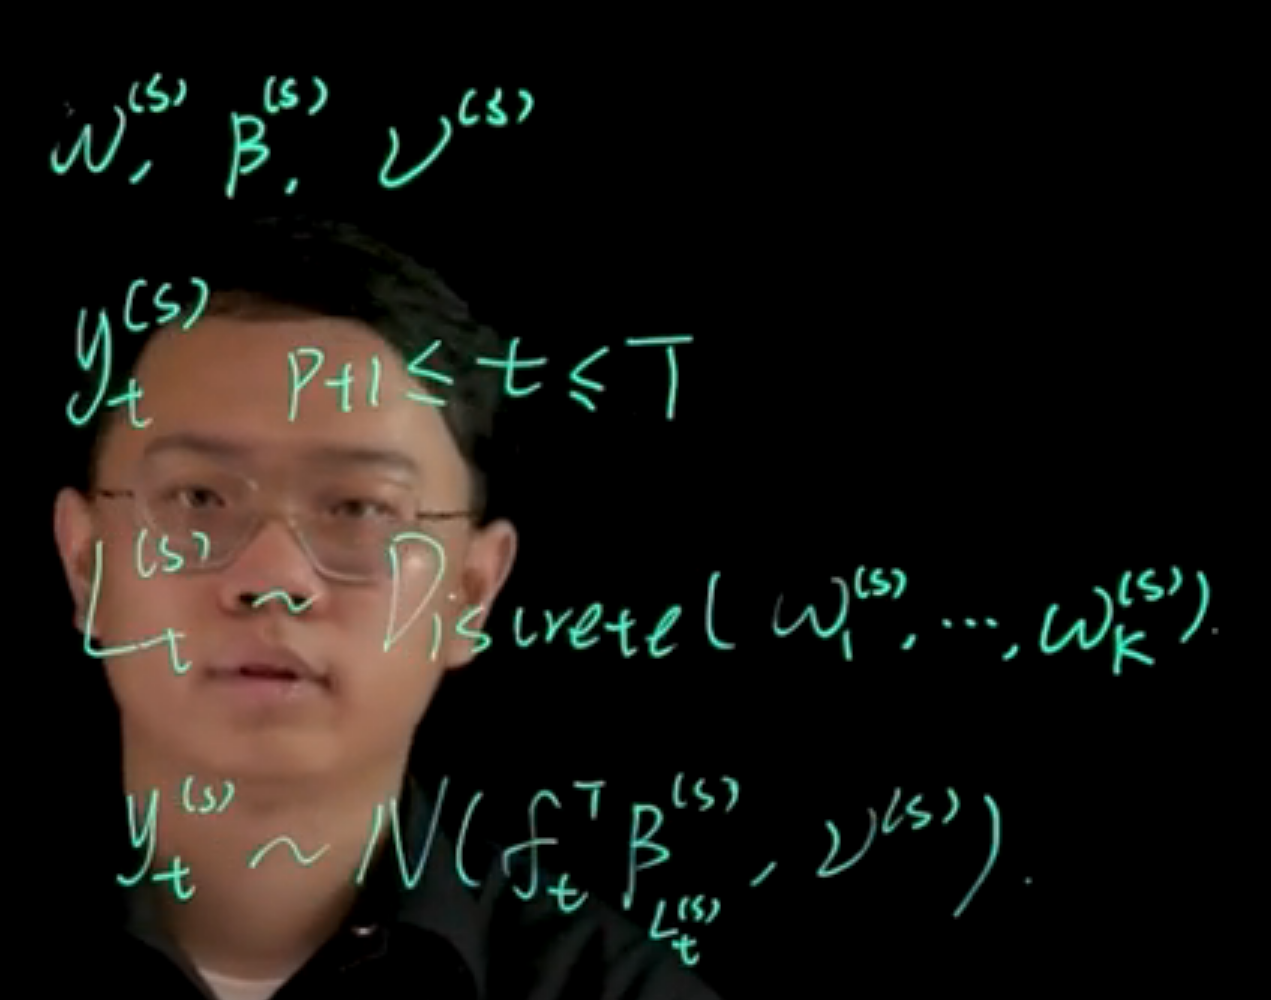 w^{(s)}, β^{(s)}, ν^{(s)}
y_t^{(s)} p+1 ≤ t ≤ T
L_t^{(s)} ~ Discrete( ω_1^{(s)}, ..., ω_K^{(s)} ).
y_t^{(s)} ~ N( f_t^T β_{L_t^{(s)}}^{(s)}, ν^{(s)} ).